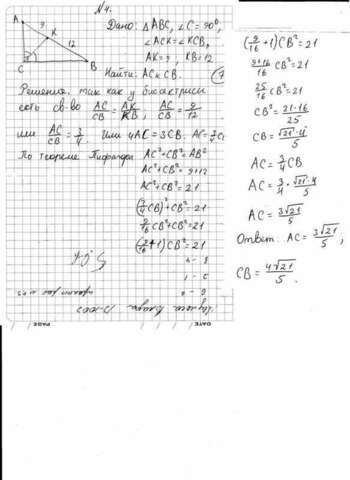 №4.
A
9
K
12
C
B
Дано: △ABC, ∠C = 90°,
∠ACK = ∠KCB,
AK = 9, KB = 12
Найти: AC и CB.
7
Решение: так как у биссектрисы
есть св-во AC/CB = AK/KB, AC/CB = 9/12
или AC/CB = 3/4. Или 4AC = 3CB.
По теореме Пифагора AC²+CB²=AB²
AC²+CB² = 9+12
AC²+CB² = 21
(3/4 CB)²+CB² = 21
9/16 CB²+CB² = 21
(9/16+1)CB² = 21
(9/16+1)CB² = 21
9+16/16 CB² = 21
25/16 CB² = 21
CB² = 21·16/25
CB = √21·4/5
AC = 3/4 CB
AC = 3/4 · √21·4/5
AC = 3√21/5
Ответ: AC = 3√21/5,
CB = 4√21/5.
PAGE
DATE